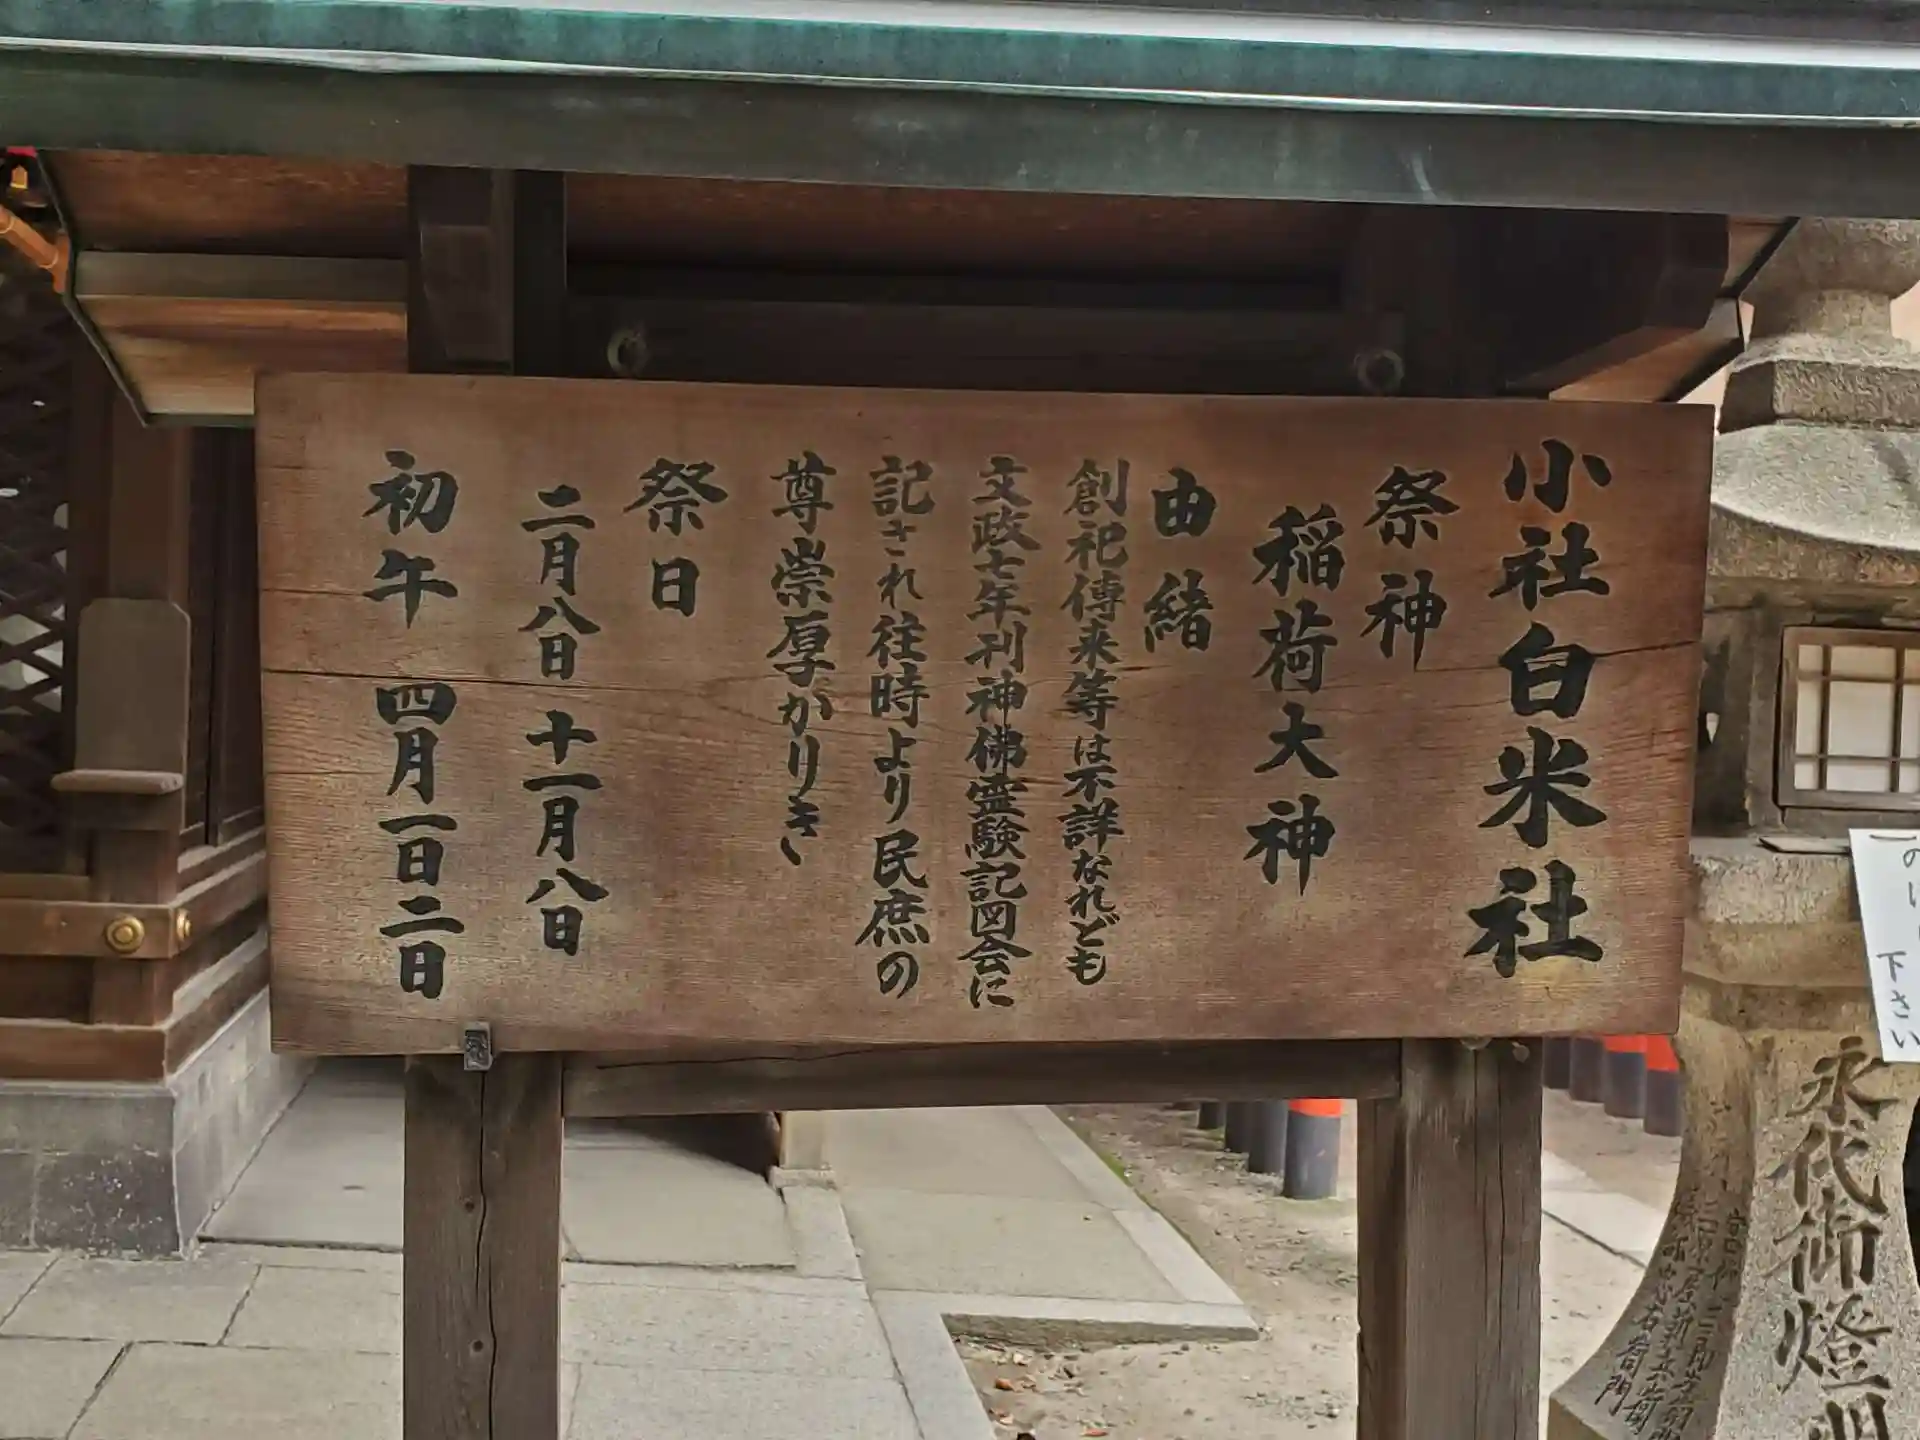 小社白米社
祭神
稲荷大神
由緒
創祀傳来等は不詳なれども
文政七年刊神佛霊験記図会に
記され往時より民庶の
尊崇厚かりき
祭日
二月八日 十一月八日
初午 四月一日二日
下さい
永代御燈